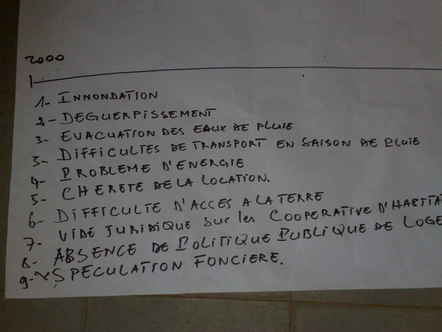 2000
1- INNONDATION
2- DEGUERPISSEMENT
3- EVACUATION DES EAUX DE PLUIE
3- DIFFICULTES DE TRANSPORT EN SAISON DE PLUIE
4- PROBLEME D'ENERGIE
5- CHERETE DE LA LOCATION.
6- DIFFICULTE D'ACCES A LA TERRE
7- VIDE JURIDIQUE SUR LES COOPERATIVE D'HABITA
8- ABSENCE DE POLITIQUE PUBLIQUE DE LOGE
9- SPECULATION FONCIERE.